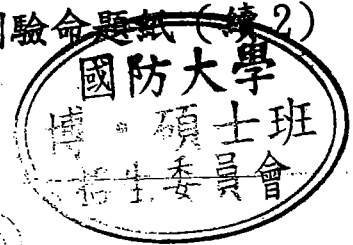 驗命題紙(續2)
國防大學
博・碩士班
招生委員會